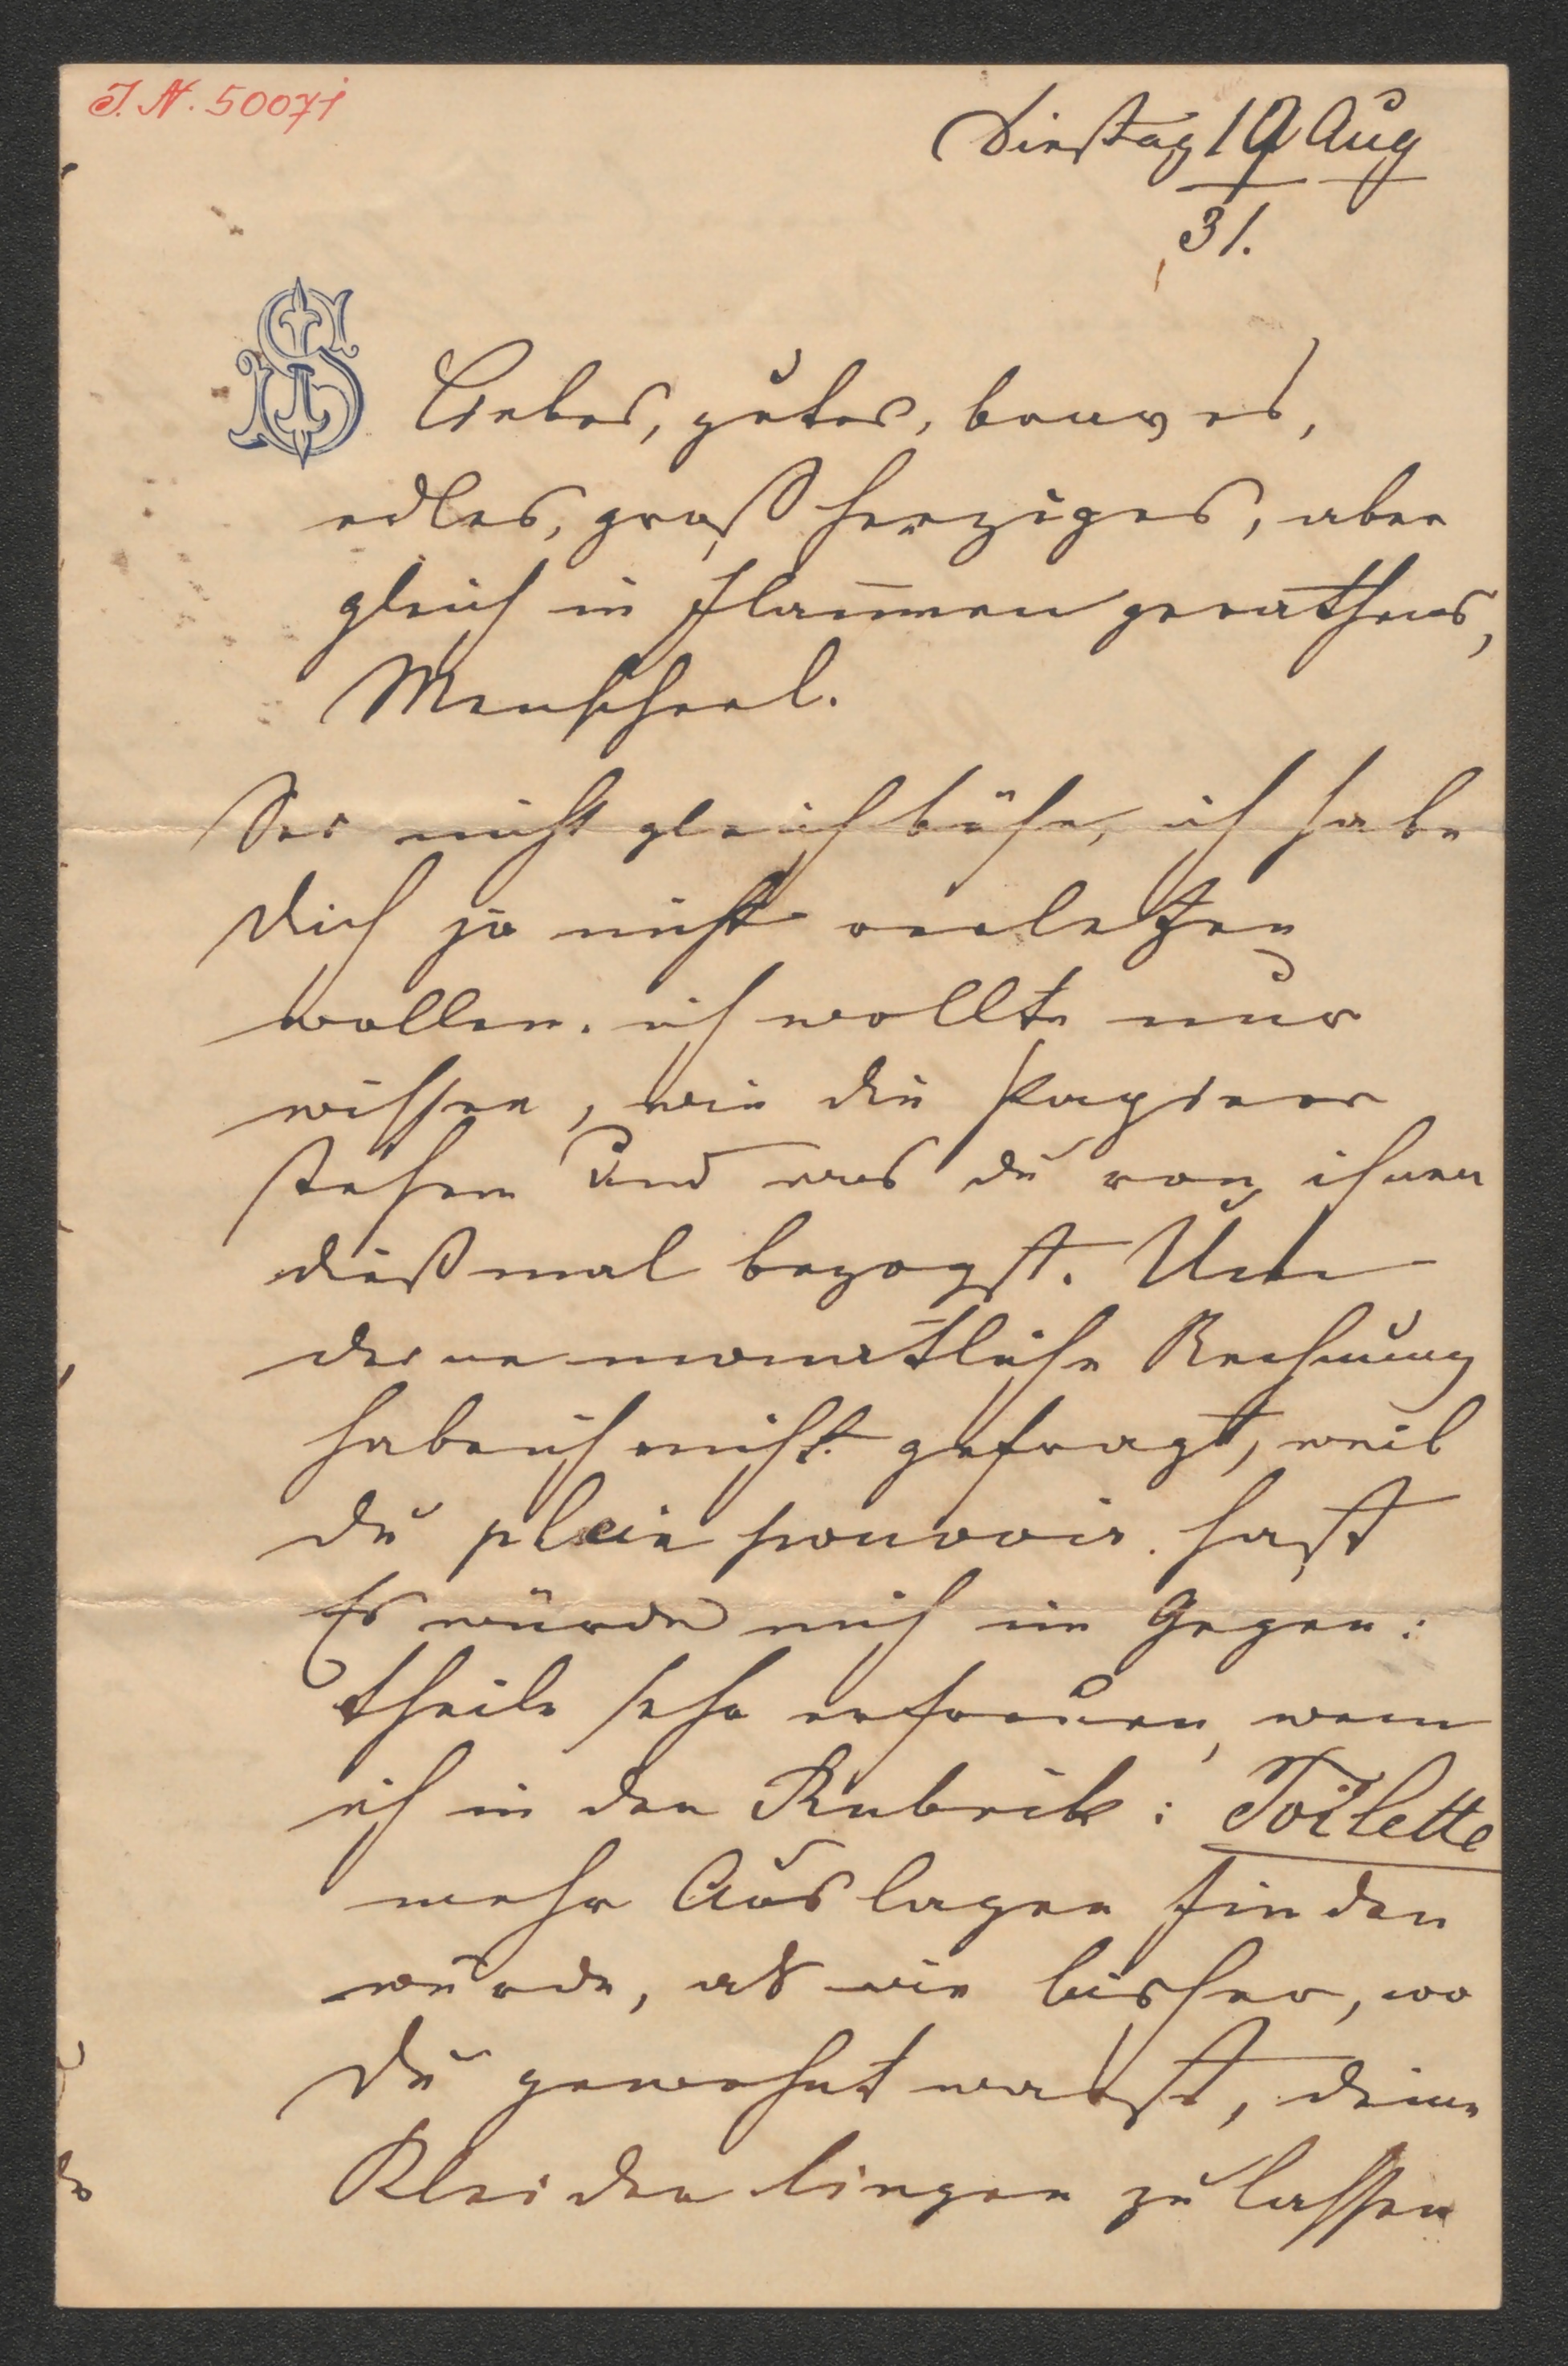 J. N. 50071
Dienstag 19 Aug
31.
JS
Liebes, gutes, braves,
edles, großherziges, aber
gleich in Flammen gerathenes,
Menscherl.
Sei nicht gleich böse, ich habe
dich ja nicht verletzen
wollen. ich wollte nur
wissen, wie die Papiere
stehen und was du von ihnen
dießmal bezogst. Um
deine monatliche Rechnung
habe ich nicht gefragt, weil
du plein pouvoir hast
Es würde mich im Gegen:
theile sehr erfreuen, wenn
ich in der Rubrik: Toilette
mehr Auslagen finden
würde, als wie bisher, wo
du gewohnt warst, deine
Kleider liegen zu lassen